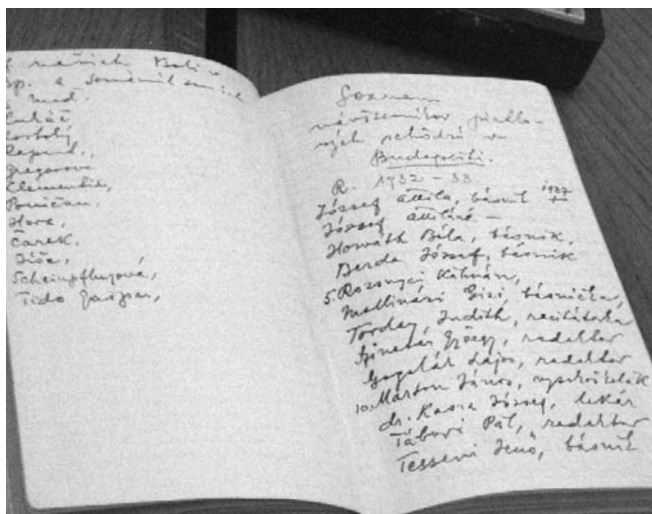 a
med.
Lukáč
Gregorová
Clementis,
Poničan,
Hora,
Čarek,
Jiša,
Scheinpflugová,
Tido Gašpar,
Soznam
návštevníkov
schôdzí v
Budapešti.
R. 1932 - 33.
József Attila, básnik 1937 +
József Attiláné -
Horváth Béla, básnik,
Berda József, básnik
5. Rozsnyai Kálmán,
Mallinári Gizi, básnička,
Torday, Judith, recitátorka
György, redaktor
Lajos, redaktor
10. Márton János,
dr. József, lekár
Tábori Pál, redaktor
Jenő, básnik